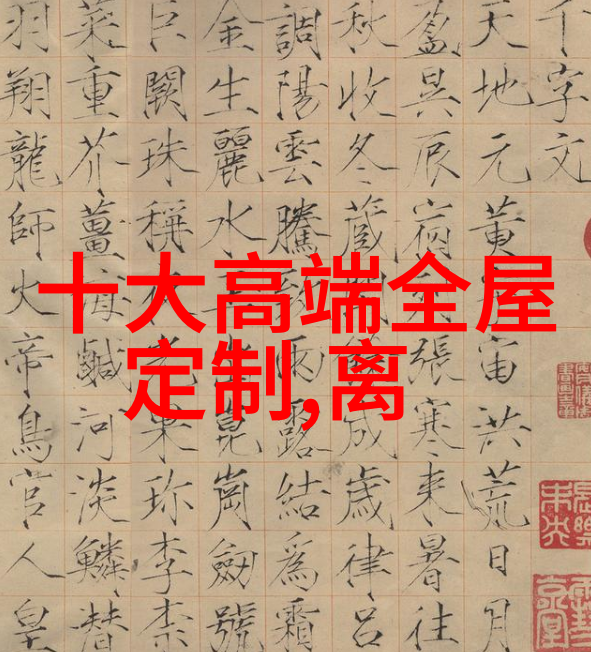 十大高端全屋
定制,离
千字文
天地元黄宇宙洪荒日月
盈昃辰宿列張寒来暑往
秋收冬蔵閏餘成歲律吕
調陽雲騰致雨露結為霜
金生麗水玉出崑崗劒號
巨闕珠稱夜光果珍李柰
菜重芥薑海鹹河淡鱗潛
羽翔龍師火帝鳥官人皇